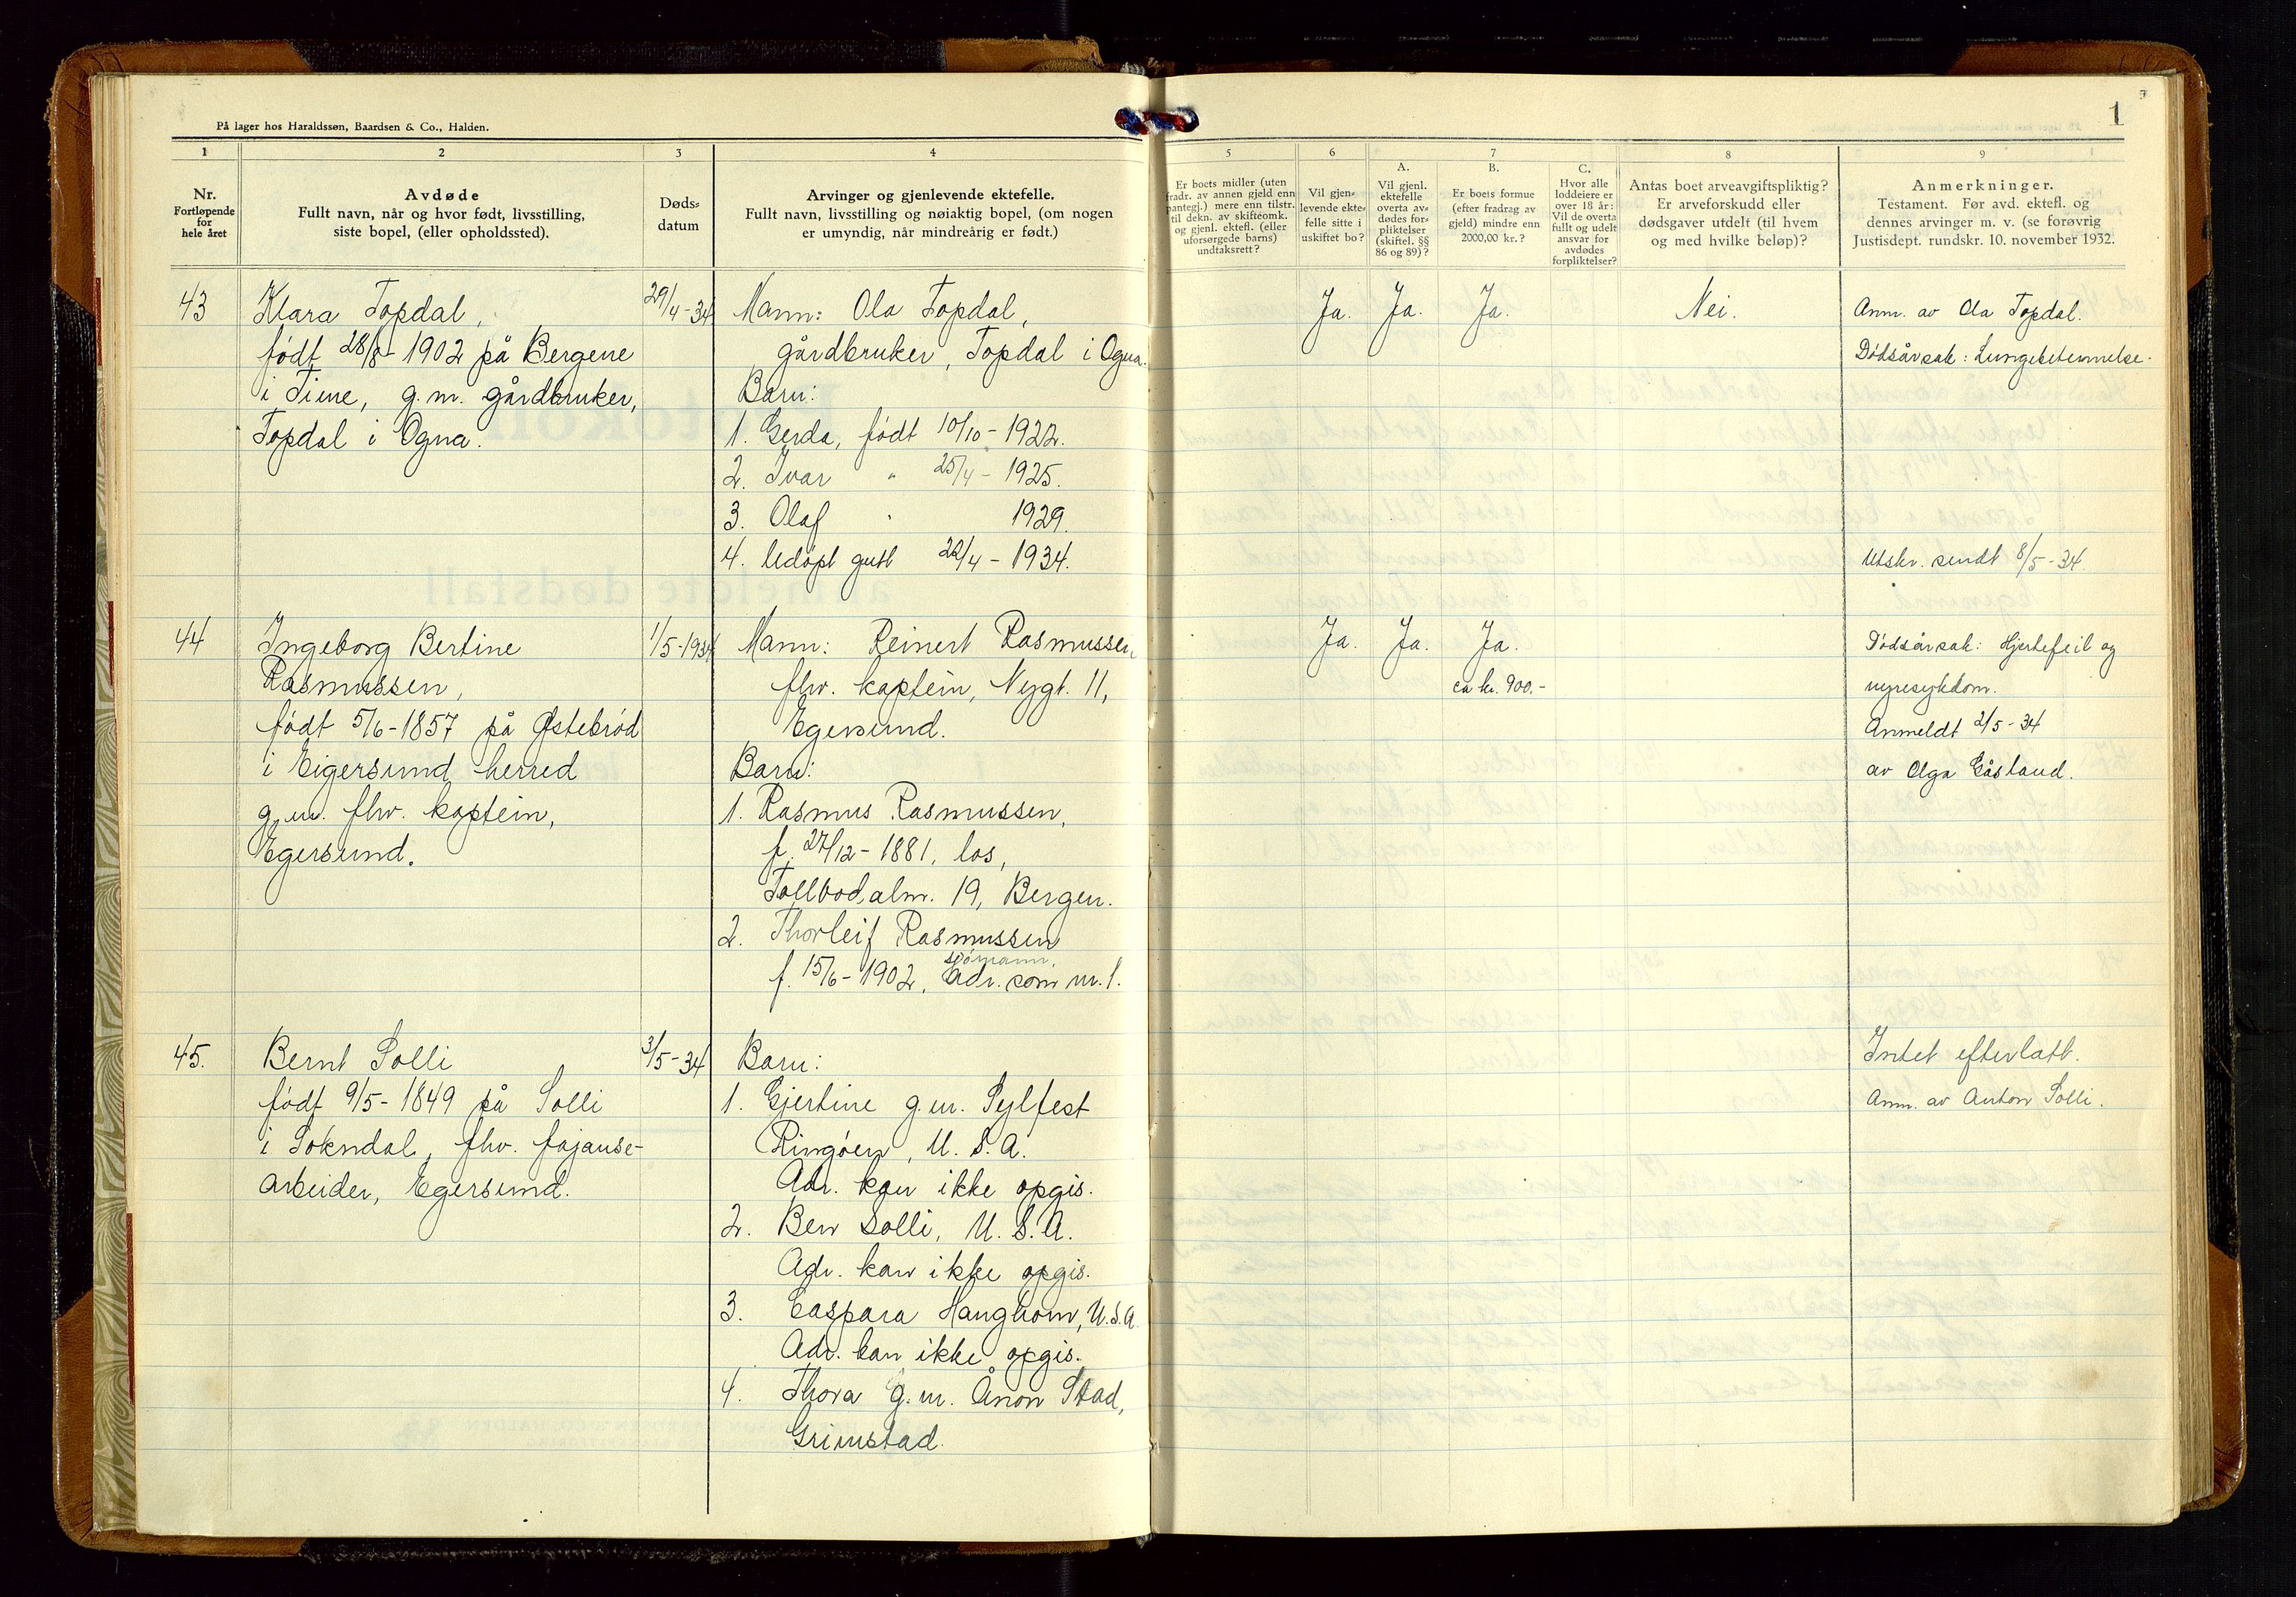 På lager hos Haraldssøn, Baardsen & Co., Halden.
1
1
2
3
4
5
6
7
8
9
Nr.
Fortløpende
for
hele året
Avdøde
Fullt navn, når og hvor født, livsstilling,
siste bopel, (eller opholdssted).
Døds-
datum
Arvinger og gjenlevende ektefelle.
Fullt navn, livsstilling og nøiaktig bopel, (om nogen
er umyndig, når mindreårig er født.)
Er boets midler (uten
fradr. av annen gjeld enn
pantegj.) mere enn tilstr.
til dekn. av skifteomk.
og gjenl. ektefl. (eller
uforsørgede barns)
undtaksrett?
Vil gjen-
levende ekte-
felle sitte i
uskiftet bo?
A.
Vil gjenl.
ektefelle
overta av-
dødes for-
pliktelser
(skiftel. §§
86 og 89)?
B.
Er boets formue
(efter fradrag av
gjeld) mindre enn
2000,00 kr.?
C.
Hvor alle
loddeiere er
over 18 år:
Vil de overta
fullt og udelt
ansvar for
avdødes
forpliktelser?
Antas boet arveavgiftspliktig?
Er arveforskudd eller
dødsgaver utdelt (til hvem
og med hvilke beløp)?
Anmerkninger.
Testament. Før avd. ektefl. og
dennes arvinger m. v. (se forøvrig
Justisdept. rundskr. 10. november 1932.
43
Klara Topdal,
født 28/8-1902 på Bergene
i Time, g.m. gårdbruker,
Topdal i Ogna.
29/4-34
Mann: Ola Topdal,
gårdbruker, Topdal i Ogna.
Barn:
1. Gerda, født 10/10-1922.
2. Ivar " 25/4-1925.
3. Olaf " 1929.
4. Udøpt gutt 22/4-1934.
Ja. Ja. Ja.
Nei.
Anm. av Ola Topdal.
Dødsårsak: Lungebetennelse.
Utskr. sendt 8/5-34.
44
Ingeborg Bertine
Rasmussen,
født 5/6-1857 på Østebrød
i Eigersund herred
g.m. fhv. kaptein,
Egersund.
1/5-1934
Mann: Reinert Rasmussen,
fhv. kaptein, Nygt. 11,
Egersund.
Barn:
1. Rasmus Rasmussen,
f. 27/12-1881, los,
Tollbodalm. 19, Bergen.
2. Thorleif Rasmussen
sjømann,
f. 15/6-1902, Adr. som nr. 1.
Ja. Ja. Ja.
ca kr. 900.-
Dødsårsak: Hjertefeil og
nyresykdom.
Anmeldt 2/5-34
av Olga Gåsland.
45.
Bernt Solli
født 9/5-1849 på Solli
i Sokndal, fhv. fajanse-
arbeider, Egersund.
3/5-34
Barn:
1. Gjertine g.m. Sylfest
Ringøen, U.S.A.
Adr. kan ikke opgis.
2. Ben Solli, U.S.A.
Adr. kan ikke opgis.
3. Caspara Haughom, U.S.A.
Adr. kan ikke opgis.
4. Thora g.m. Ånon Stad,
Grimstad.
Intet efterlatt.
Anm. av Anton Solli.